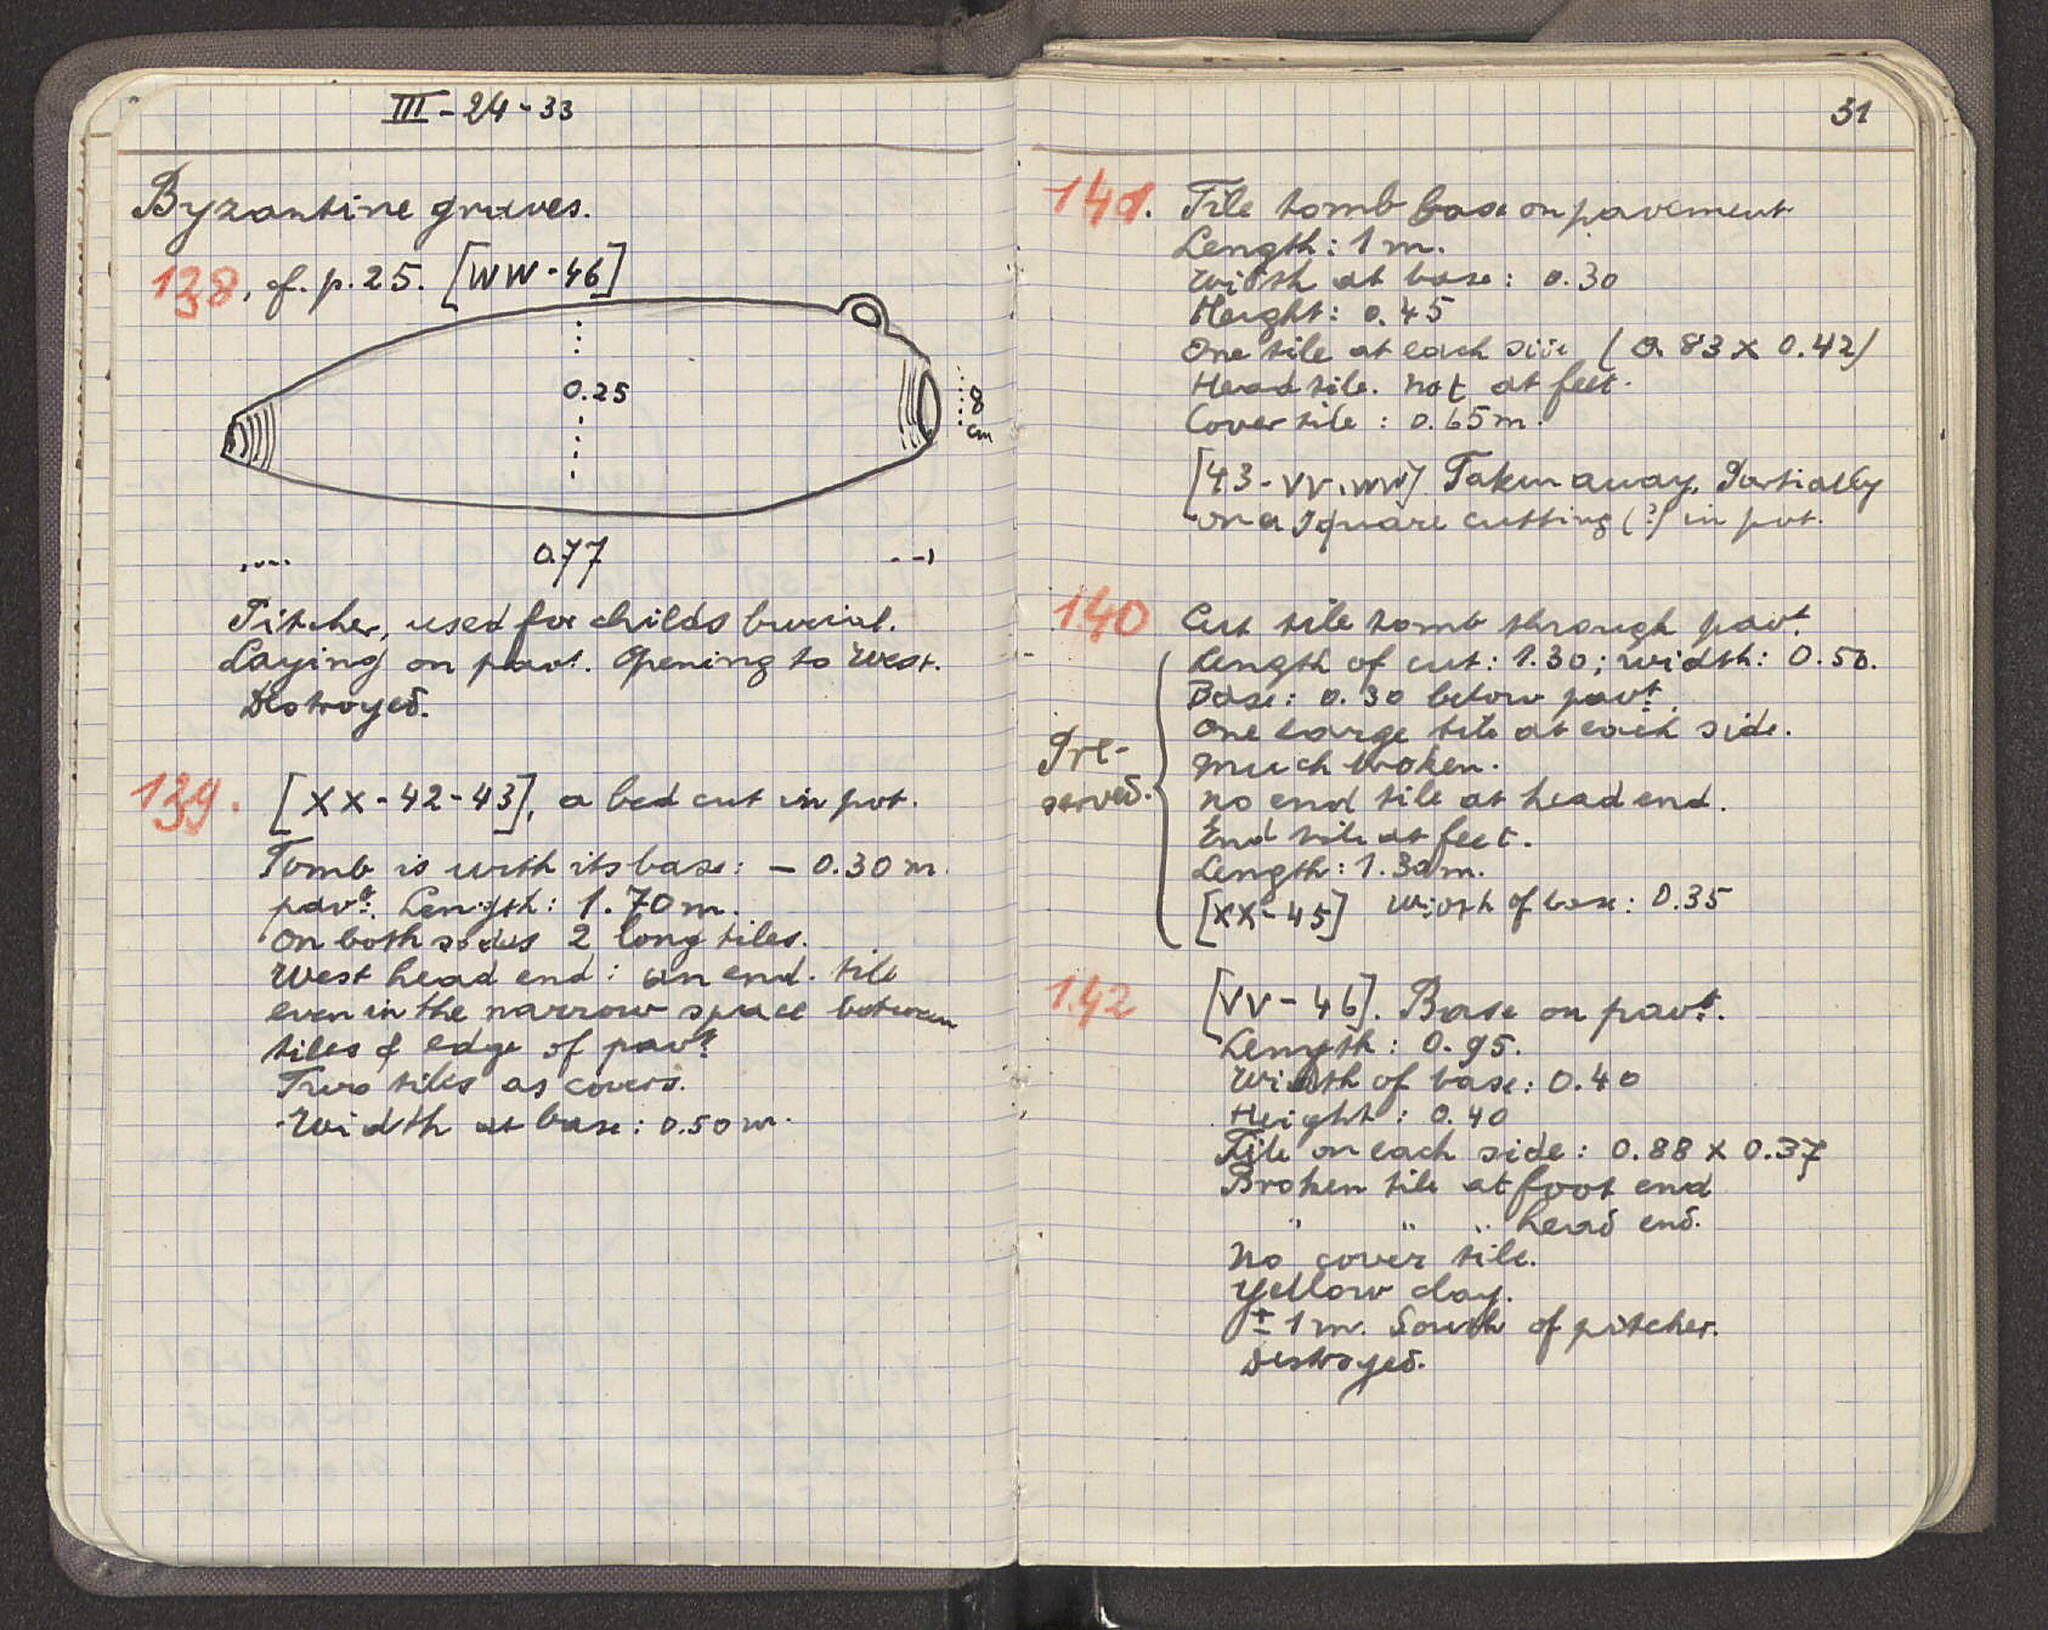 III - 24 - 33
Byzantine graves.
138, cf. p. 25. [WW - 46]
0.25
8
cm
0.77
Pitcher, used for childs burial.
Laying on pavt. Opening to West.
Destroyed.
139. [XX - 42 - 43], a bed cut in pvt.
Tomb is with its base: - 0.30 m.
pavt. Length: 1.70 m.
On both sides 2 long tiles.
West head end: an end. tile
even in the narrow space between
tiles & edge of pavt.
Two tiles as covers.
Width at base: 0.50 m.
31
141. Tile tomb base on pavement
Length: 1 m.
Width at base: 0.30
Height: 0.45
One tile at each side (0.83 x 0.42)
Head tile. Not at feet.
Cover tile: 0.65 m.
[43 - VV, WW] Taken away. Partially
on a square cutting (?) in pvt.
140 Cut tile tomb through pavt.
Length of cut: 1.30; width: 0.50.
Base: 0.30 below pavt.
One large tile at each side.
Much broken.
No end tile at head end.
End tile at feet.
Length: 1.30 m.
[XX - 45] Width of base: 0.35
Pre-
served.
142 [VV - 46]. Base on pavt.
Length: 0.95.
Width of base: 0.40
Height: 0.40
Tile on each side: 0.88 x 0.37
Broken tile at foot end
" " " head end.
No cover tile.
Yellow clay.
± 1 m. South of pitcher.
Destroyed.